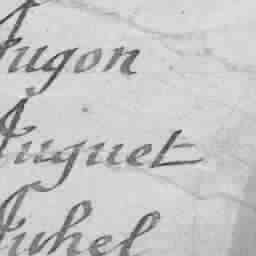 Jugon
Juguet
Juhel